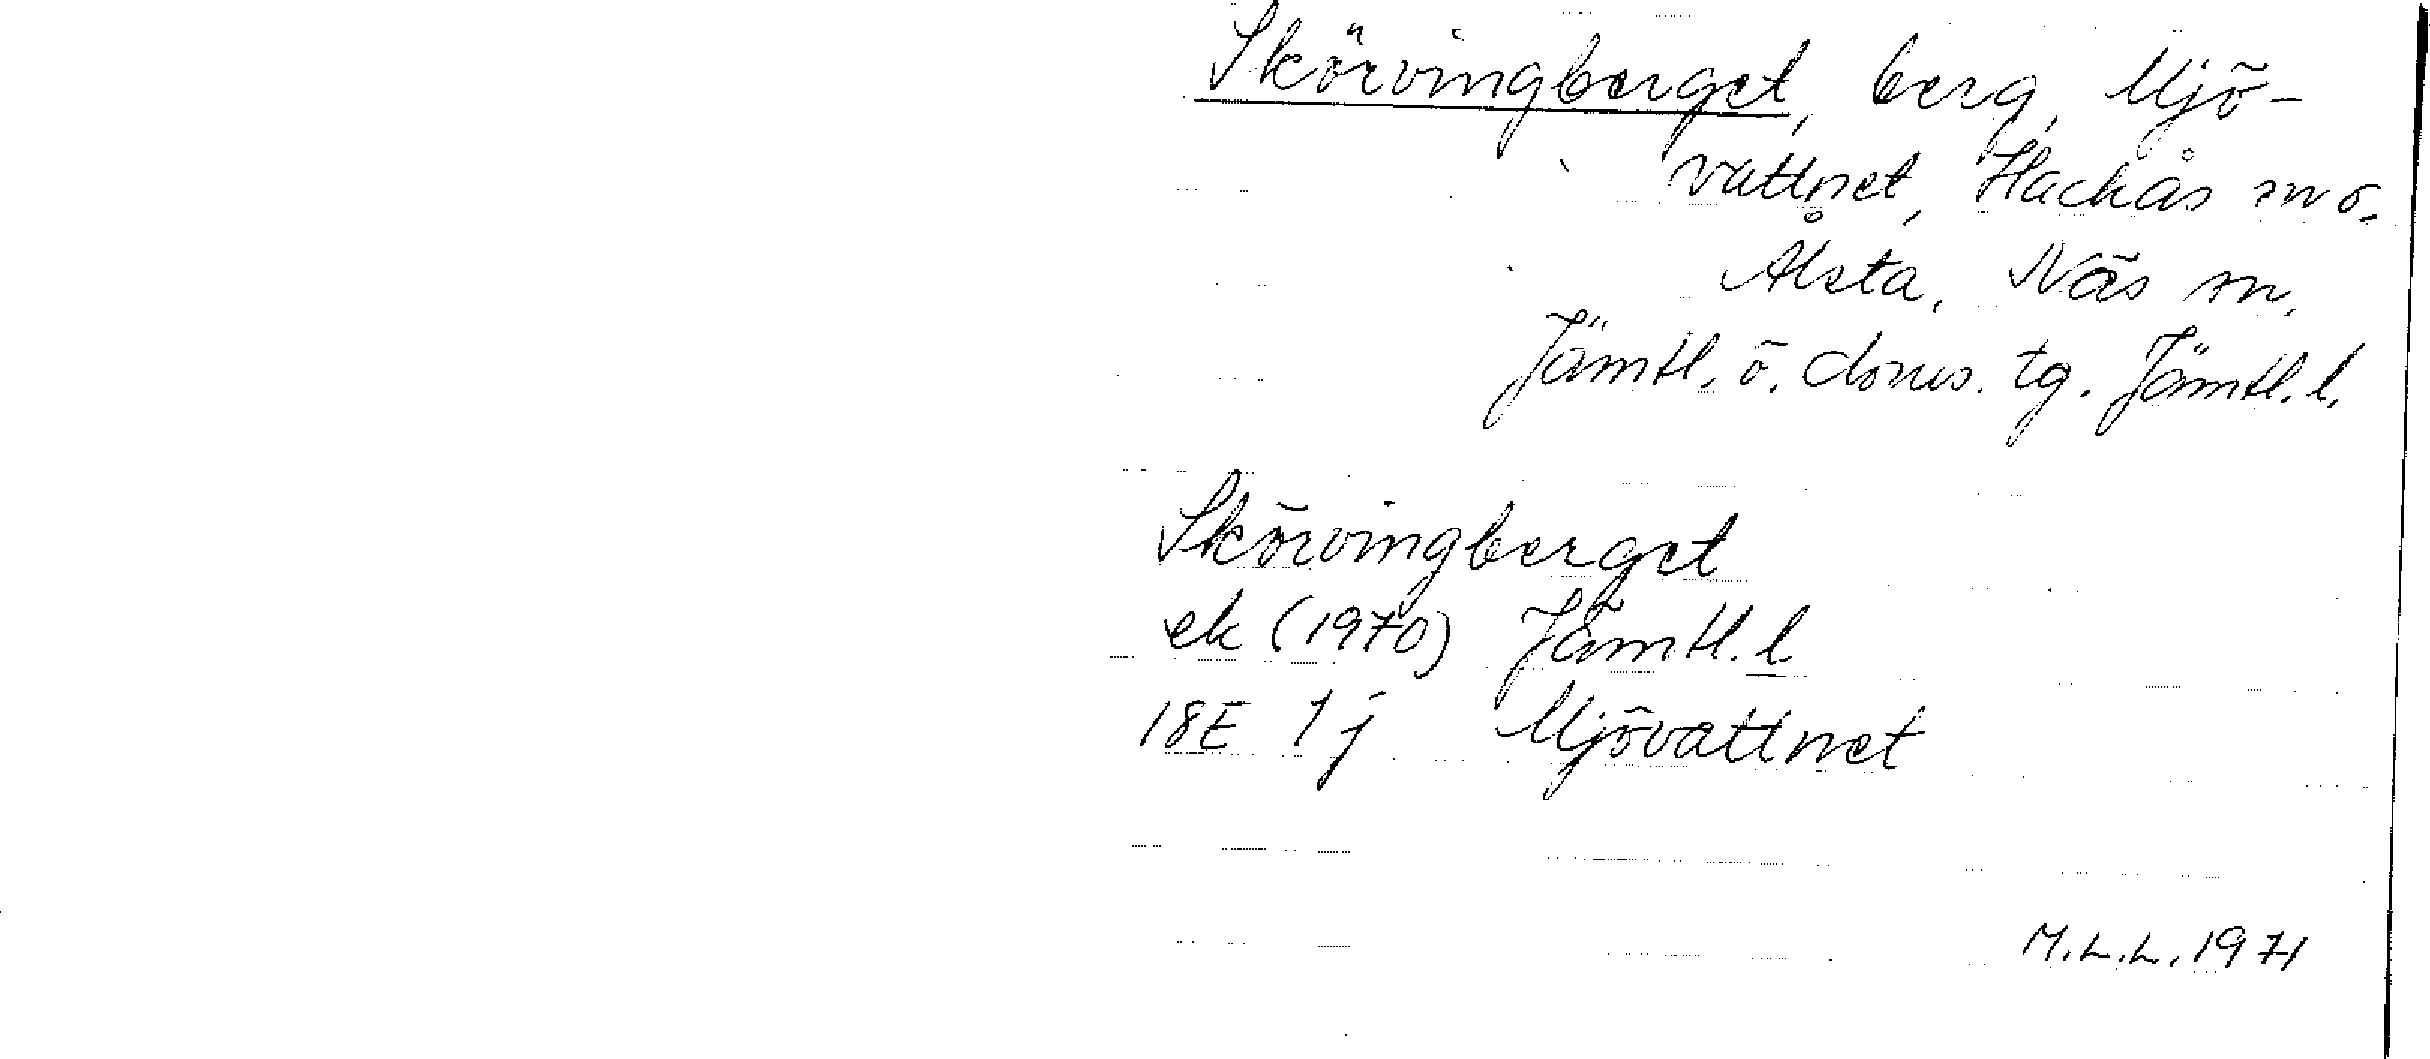 Skörvingberget, berg, Mjö-
vattnet, Hackås sn o.
Ålsta, Näs sn,
Jämtl. ö. doms. tg. Jämtl. l.
Skörvingberget
ek (1970) Jämtl. l.
18E 1j Mjövattnet
M.L.L. 1971